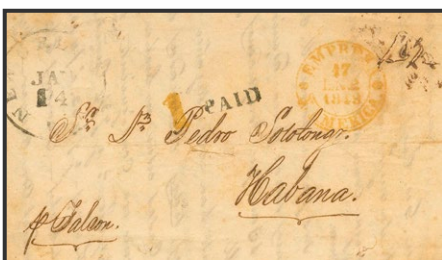 JA
24
PAID
EMPRE
17
ENE
1848
AMERICA
Sr. Dn. Pedro Sotolongo.
Habana.
p Falcon.